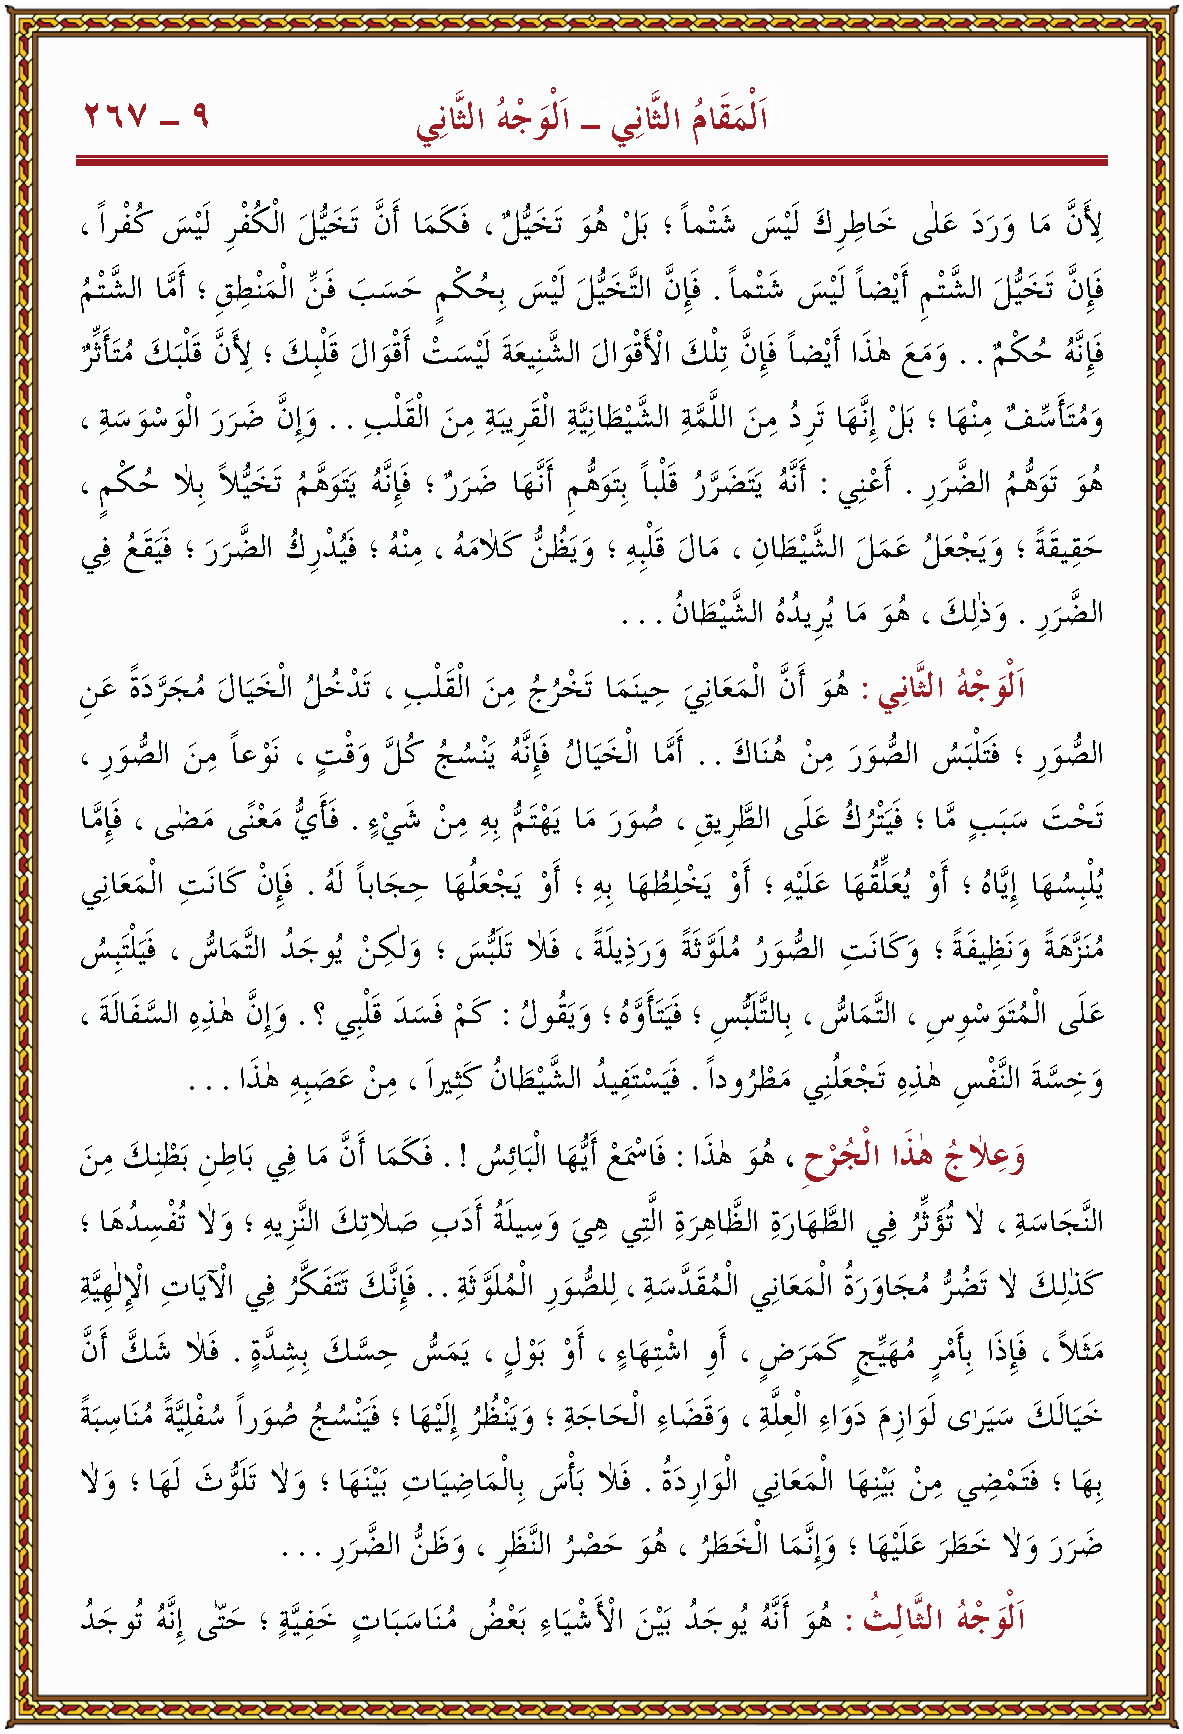 اَلْمَقَامُ الثَّانِي ــ اَلْوَجْهُ الثَّانِي ٩ ــ ٢٦٧
لِأَنَّ مَا وَرَدَ عَلٰى خَاطِرِكَ لَيْسَ شَتْماً ؛ بَلْ هُوَ تَخَيُّلٌ ، فَكَمَا أَنَّ تَخَيُّلَ الْكُفْرِ لَيْسَ كُفْراً ،
فَإِنَّ تَخَيُّلَ الشَّتْمِ أَيْضاً لَيْسَ شَتْماً . فَإِنَّ التَّخَيُّلَ لَيْسَ بِحُكْمٍ حَسَبَ فَنِّ الْمَنْطِقِ ؛ أَمَّا الشَّتْمُ
فَإِنَّهُ حُكْمٌ . . وَمَعَ هٰذَا أَيْضاً فَإِنَّ تِلْكَ الْأَقْوَالَ الشَّنِيعَةَ لَيْسَتْ أَقْوَالَ قَلْبِكَ ؛ لِأَنَّ قَلْبَكَ مُتَأَثِّرٌ
وَمُتَأَسِّفٌ مِنْهَا ؛ بَلْ إِنَّهَا تَرِدُ مِنَ اللَّمَّةِ الشَّيْطَانِيَّةِ الْقَرِيبَةِ مِنَ الْقَلْبِ . . وَإِنَّ ضَرَرَ الْوَسْوَسَةِ ،
هُوَ تَوَهُّمُ الضَّرَرِ . أَعْنِي : أَنَّهُ يَتَضَرَّرُ قَلْباً بِتَوَهُّمِ أَنَّهَا ضَرَرٌ ؛ فَإِنَّهُ يَتَوَهَّمُ تَخَيُّلاً بِلاٰ حُكْمٍ ،
حَقِيقَةً ؛ وَيَجْعَلُ عَمَلَ الشَّيْطَانِ ، مَالَ قَلْبِهِ ؛ وَيَظُنُّ كَلاٰمَهُ ، مِنْهُ ؛ فَيُدْرِكُ الضَّرَرَ ؛ فَيَقَعُ فِي
الضَّرَرِ . وَذٰلِكَ ، هُوَ مَا يُرِيدُهُ الشَّيْطَانُ . . .
اَلْوَجْهُ الثَّانِي : هُوَ أَنَّ الْمَعَانِيَ حِينَمَا تَخْرُجُ مِنَ الْقَلْبِ ، تَدْخُلُ الْخَيَالَ مُجَرَّدَةً عَنِ
الصُّوَرِ ؛ فَتَلْبَسُ الصُّوَرَ مِنْ هُنَاكَ . . أَمَّا الْخَيَالُ فَإِنَّهُ يَنْسُجُ كُلَّ وَقْتٍ ، نَوْعاً مِنَ الصُّوَرِ ،
تَحْتَ سَبَبٍ مَّا ؛ فَيَتْرُكُ عَلَى الطَّرِيقِ ، صُوَرَ مَا يَهْتَمُّ بِهِ مِنْ شَيْءٍ . فَأَيُّ مَعْنًى مَضٰى ، فَإِمَّا
يُلْبِسُهَا إِيَّاهُ ؛ أَوْ يُعَلِّقُهَا عَلَيْهِ ؛ أَوْ يَخْلِطُهَا بِهِ ؛ أَوْ يَجْعَلُهَا حِجَاباً لَهُ . فَإِنْ كَانَتِ الْمَعَانِي
مُنَزَّهَةً وَنَظِيفَةً ؛ وَكَانَتِ الصُّوَرُ مُلَوَّثَةً وَرَذِيلَةً ، فَلاٰ تَلَبُّسَ ؛ وَلٰكِنْ يُوجَدُ التَّمَاسُّ ، فَيَلْتَبِسُ
عَلَى الْمُتَوَسْوِسِ ، التَّمَاسُّ ، بِالتَّلَبُّسِ ؛ فَيَتَأَوَّهُ ؛ وَيَقُولُ : كَمْ فَسَدَ قَلْبِي ؟ . وَإِنَّ هٰذِهِ السَّفَالَةَ ،
وَخِسَّةَ النَّفْسِ هٰذِهِ تَجْعَلُنِي مَطْرُوداً . فَيَسْتَفِيدُ الشَّيْطَانُ كَثِيراَ ، مِنْ عَصَبِهِ هٰذَا . . .
وَعِلاٰجُ هٰذَا الْجُرْحِ ، هُوَ هٰذَا : فَاسْمَعْ أَيُّهَا الْبَائِسُ ! . فَكَمَا أَنَّ مَا فِي بَاطِنِ بَطْنِكَ مِنَ
النَّجَاسَةِ ، لاٰ تُؤَثِّرُ فِي الطَّهَارَةِ الظَّاهِرَةِ الَّتِي هِيَ وَسِيلَةُ أَدَبِ صَلاٰتِكَ النَّزِيهِ ؛ وَلاٰ تُفْسِدُهَا ؛
كَذٰلِكَ لاٰ تَضُرُّ مُجَاوَرَةُ الْمَعَانِي الْمُقَدَّسَةِ ، لِلصُّوَرِ الْمُلَوَّثَةِ . . فَإِنَّكَ تَتَفَكَّرُ فِي الْآيَاتِ الْإِلٰهِيَّةِ
مَثَلاً ، فَإِذَا بِأَمْرٍ مُهَيِّجٍ كَمَرَضٍ ، أَوِ اشْتِهَاءٍ ، أَوْ بَوْلٍ ، يَمَسُّ حِسَّكَ بِشِدَّةٍ . فَلاٰ شَكَّ أَنَّ
خَيَالَكَ سَيَرٰى لَوَازِمَ دَوَاءِ الْعِلَّةِ ، وَقَضَاءِ الْحَاجَةِ ؛ وَيَنْظُرُ إِلَيْهَا ؛ فَيَنْسُجُ صُوَراً سُفْلِيَّةً مُنَاسِبَةً
بِهَا ؛ فَتَمْضِي مِنْ بَيْنِهَا الْمَعَانِي الْوَارِدَةُ . فَلاٰ بَأْسَ بِالْمَاضِيَاتِ بَيْنَهَا ؛ وَلاٰ تَلَوُّثَ لَهَا ؛ وَلاٰ
ضَرَرَ وَلاٰ خَطَرَ عَلَيْهَا ؛ وَإِنَّمَا الْخَطَرُ ، هُوَ حَصْرُ النَّظَرِ ، وَظَنُّ الضَّرَرِ . . .
اَلْوَجْهُ الثَّالِثُ : هُوَ أَنَّهُ يُوجَدُ بَيْنَ الْأَشْيَاءِ بَعْضُ مُنَاسَبَاتٍ خَفِيَّةٍ ؛ حَتّٰى إِنَّهُ تُوجَدُ